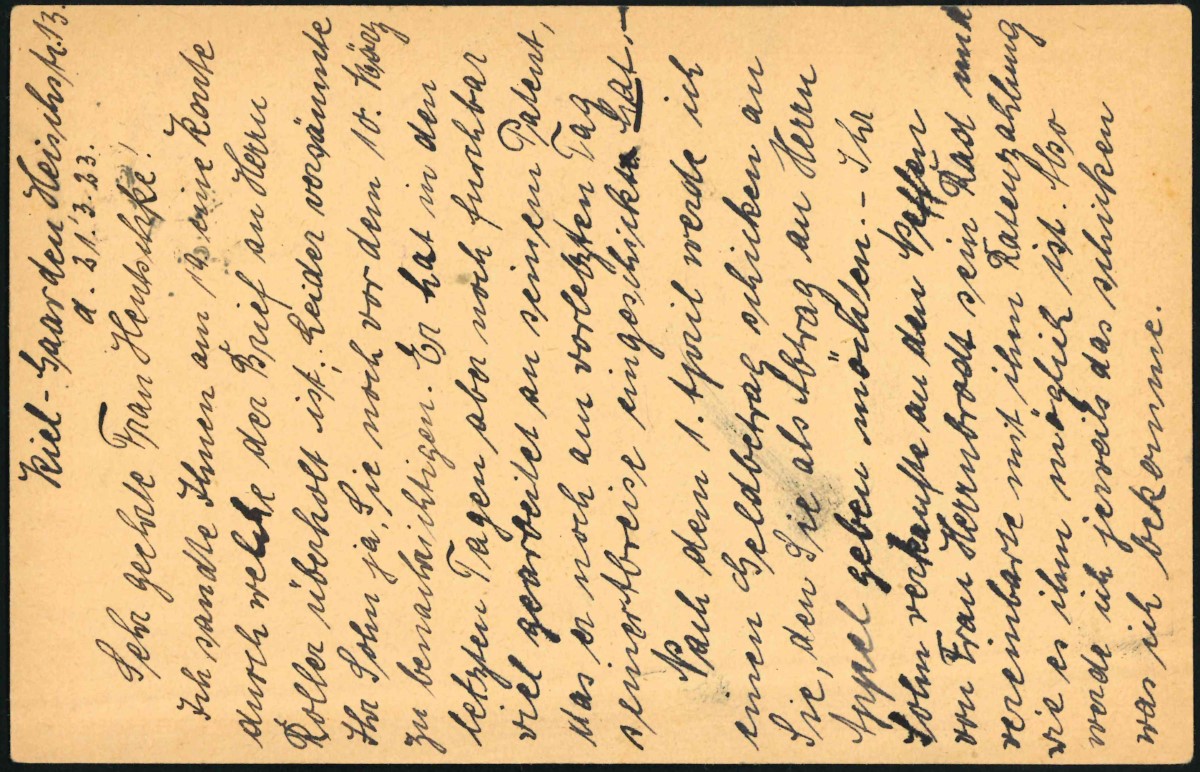 Kiel-Gaarden Heischstr. 13.
d. 21.3.23.
Sehr geehrte Frau Hentschke!
Ich sandte Ihnen am 19 eine Karte
durch welche der Brief an Herrn
Roller überholt ist; Leider versäumte
Ihr Sohn ja, Sie noch vor dem 10. März
zu benachrichtigen. Er hat in den
letzten Tagen aber noch furchbar
viel gearbeitet an seinem Patent,
das er noch am vorletzten Tag
seiner Abreise eingeschickt hat.-
Nach dem 1. April werde ich
einen Geldbetrag schicken an
Sie, den Sie als Abtrag an Herrn
Appel geben möchten. - Ihr
Sohn verkaufte an den Neffen
von Frau Herrnbrodt sein Rad und
vereinbarte mit ihm Ratenzahlung
wie es ihm möglich ist. Also
werde ich jeweils das schicken
was ich bekomme.